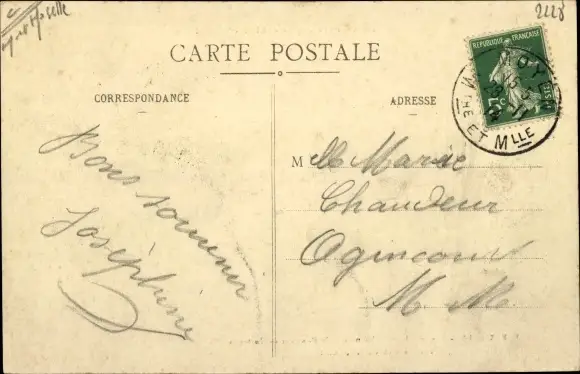 2228
CARTE POSTALE
CORRESPONDANCE
ADRESSE
REPUBLIQUE FRANÇAISE
ET MLLE
Bons souvenir
Joséphine
Mlle Marie
Chaudeur
Agincourt
M. M.